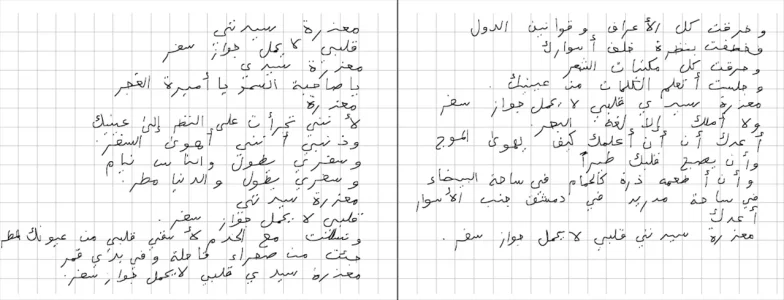 معذرة سيدتي
قلبي لا يحمل جواز سفر
معذرة سيدتي
يا صاحبة السمو يا أميرة الغجر
معذرة
لأنني تجرأت على النظر إلى عينيك
وذنبي أنني أهوى السفر
وسفري يطول والناس نيام
وسفري يطول والدنيا مطر.
معذرة سيدتي
قلبي لا يحمل جواز سفر.
وتسللت مع الخدم لأسقي قلبي من عيونك مطر
جئت من صحراء قاحلة وفي يدي قمر
معذرة سيدتي قلبي لا يحمل جواز سفر.
وخرقت كل الأعراف وقوانين الدول
وخطفت بنظرة خلف أسوارك
وحرقت كل مكتبات الشعر
وجلست أتعلم الكلمات من عينيك.
معذرة سيدتي قلبي لا يحمل جواز سفر
ولا أملك إلا لغة البحر
أعدك أن أعلمك كيف يهوى الموج
وأن يصبح قلبك طيراً
وأن أطعمه ذرة كالحمام في ساحة البيضاء
في ساحة مدريد في دمشق جنب الأسوار
أعدك
معذرة سيدتي قلبي لا يحمل جواز سفر.